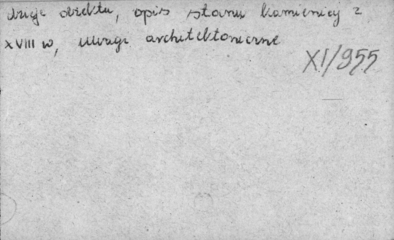 dzieje obiektu, opis stanu kamienicy z
XVIII w, uwagi architektoniczne
XI/955